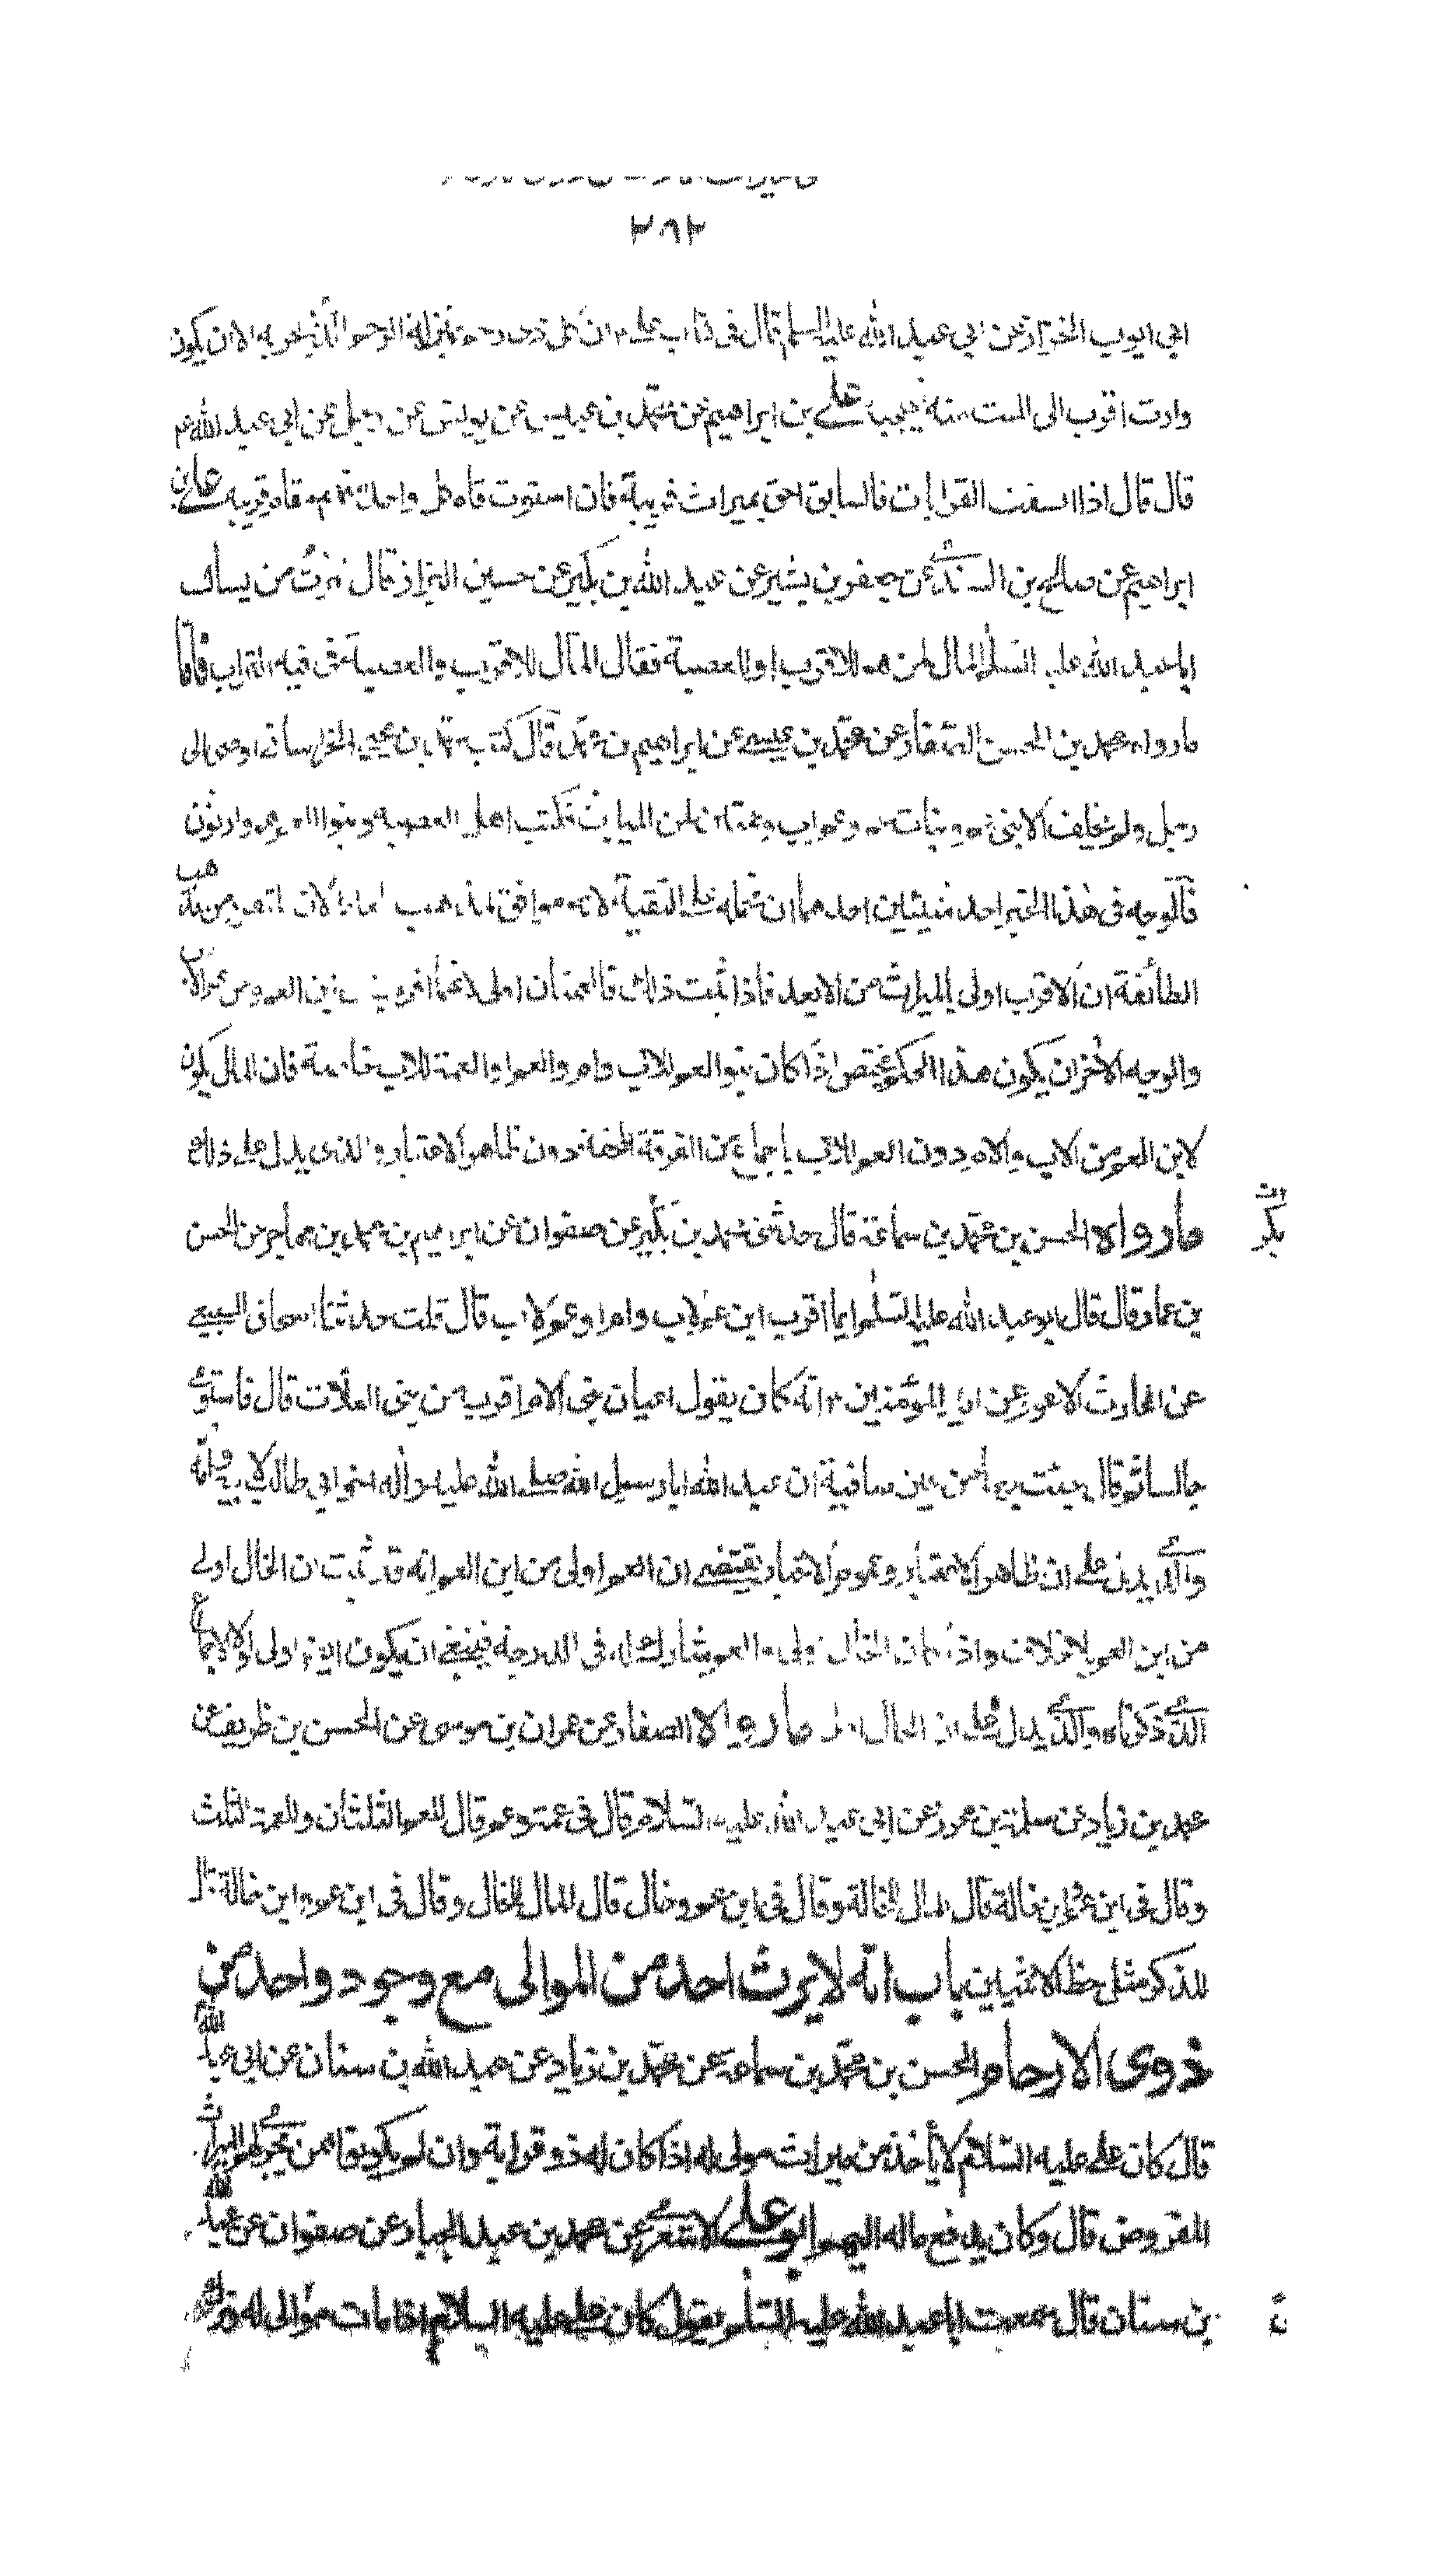 ٢٩٢
ابي ايوب الخزاز عن ابي عبد الله عليه السلم قال في كتاب علي م ان كل ذي رحم بمنزلة الرحم الذي يجر به الا ان يكون
وارث اقرب الى الميت منه فيحجبه علي بن ابراهيم عن محمد بن عيسى عن يونس عن رجل عن ابي عبد الله عم
قال قال اذا التفت القرابات فالسابق احق بميراث قريبه فان استوت قام كل واحد منهم مقام قريبه علي بن
ابراهيم عن صالح بن السندي عن جعفر بن بشير عن عبد الله بن بكير عن حسين البزاز قال امرت من يسأل
ابا عبد الله عليه السلم المال لمن هو للاقرب او للعصبة فقال المال للاقرب والعصبة في فيه التراب فاما
ما رواه محمد بن الحسن الصفار عن محمد بن عيسى عن ابراهيم بن محمد قال كتب محمد بن يحيى الخراساني اوصى الي
رجل ولم يخلف الا بني عم وبنات عم وعم اب وعمتين لمن الميراث فكتب اهل العصبة وبنوا العم هم وارثون
فالوجه في هذا الخبر احد شيئين احدهما ان نحمله على التقية لانه موافق لمذهب العامة لان المتقرر من مذهب
الطائفة ان الاقرب اولى بالميراث من الابعد فاذا ثبت ذلك فالعمتان اولى لانهما اقرب من ابن العم ومن عم الاب
والوجه الاخر ان يكون هذا الحكم مختصا اذا كان بنو العم للاب وام والعم او العمة للاب خاصة فان المال يكون
لابن العم من الاب والام دون العم للاب باجماع من الفرقة المحقة دون ظاهر الاعتبار والذي يدل على ذلك
ما رواه الحسن بن محمد بن سماعة قال حدثني محمد بن بكير عن صفوان عن ابراهيم بن محمد بن مهاجر عن الحسن
بن عمار قال قال ابو عبد الله عليه السلم ايما اقرب ابن عم لاب وام او عم لاب قال قلت حدثنا اسحاق السبيعي
عن الحارث الاعور عن امير المؤمنين م انه كان يقول اعيان بني الام اقرب من بني العلات قال فاستوى
جالسا ثم قال جئت بها من عين صافية ان عبد الله ابا رسول الله صلى الله عليه واله اخو ابي طالب لابيه وامه
والذي يدل على ان ظاهر الاعتبار وعموم الاخبار يقتضي ان العم اولى من ابن العم انه قد ثبت ان الخال اولى
من ابن العم بلا خلاف واذا كان الخال اولى والعم مشارك له في الدرجة فينبغي ان يكون ايضا اولى لولا الاجماع
الذي ذكرناه والذي يدل على ان الخال اولى ما رواه الصفار عن عمران بن موسى عن الحسن بن ظريف عن
محمد بن زياد عن سلمة بن محرز عن ابي عبد الله عليه السلام قال في عمة وعم قال للعم الثلثان وللعمة الثلث
وقال في ابن عم وابن خالة قال المال للخالة وقال في ابن عم وخال قال المال للخال وقال في ابن عم وابن خالة قال
للذكر مثل حظ الانثيين باب انه لا يرث احد من الموالي مع وجود واحد من
ذوي الارحام الحسن بن محمد بن سماعة عن محمد بن زياد عن عبد الله بن سنان عن ابي عبد الله
قال كان علي عليه السلام لا يأخذ من ميراث مولى له اذا كان له ذو قرابة وان لم يكونوا ممن يجري لهم الميراث
المفروض قال وكان يدفع ماله اليهم ابو علي الاشعري عن محمد بن عبد الجبار عن صفوان عن عبد الله
بن سنان قال سمعت ابا عبد الله عليه السلم يقول كان علي عليه السلام اذا مات مولى له وترك